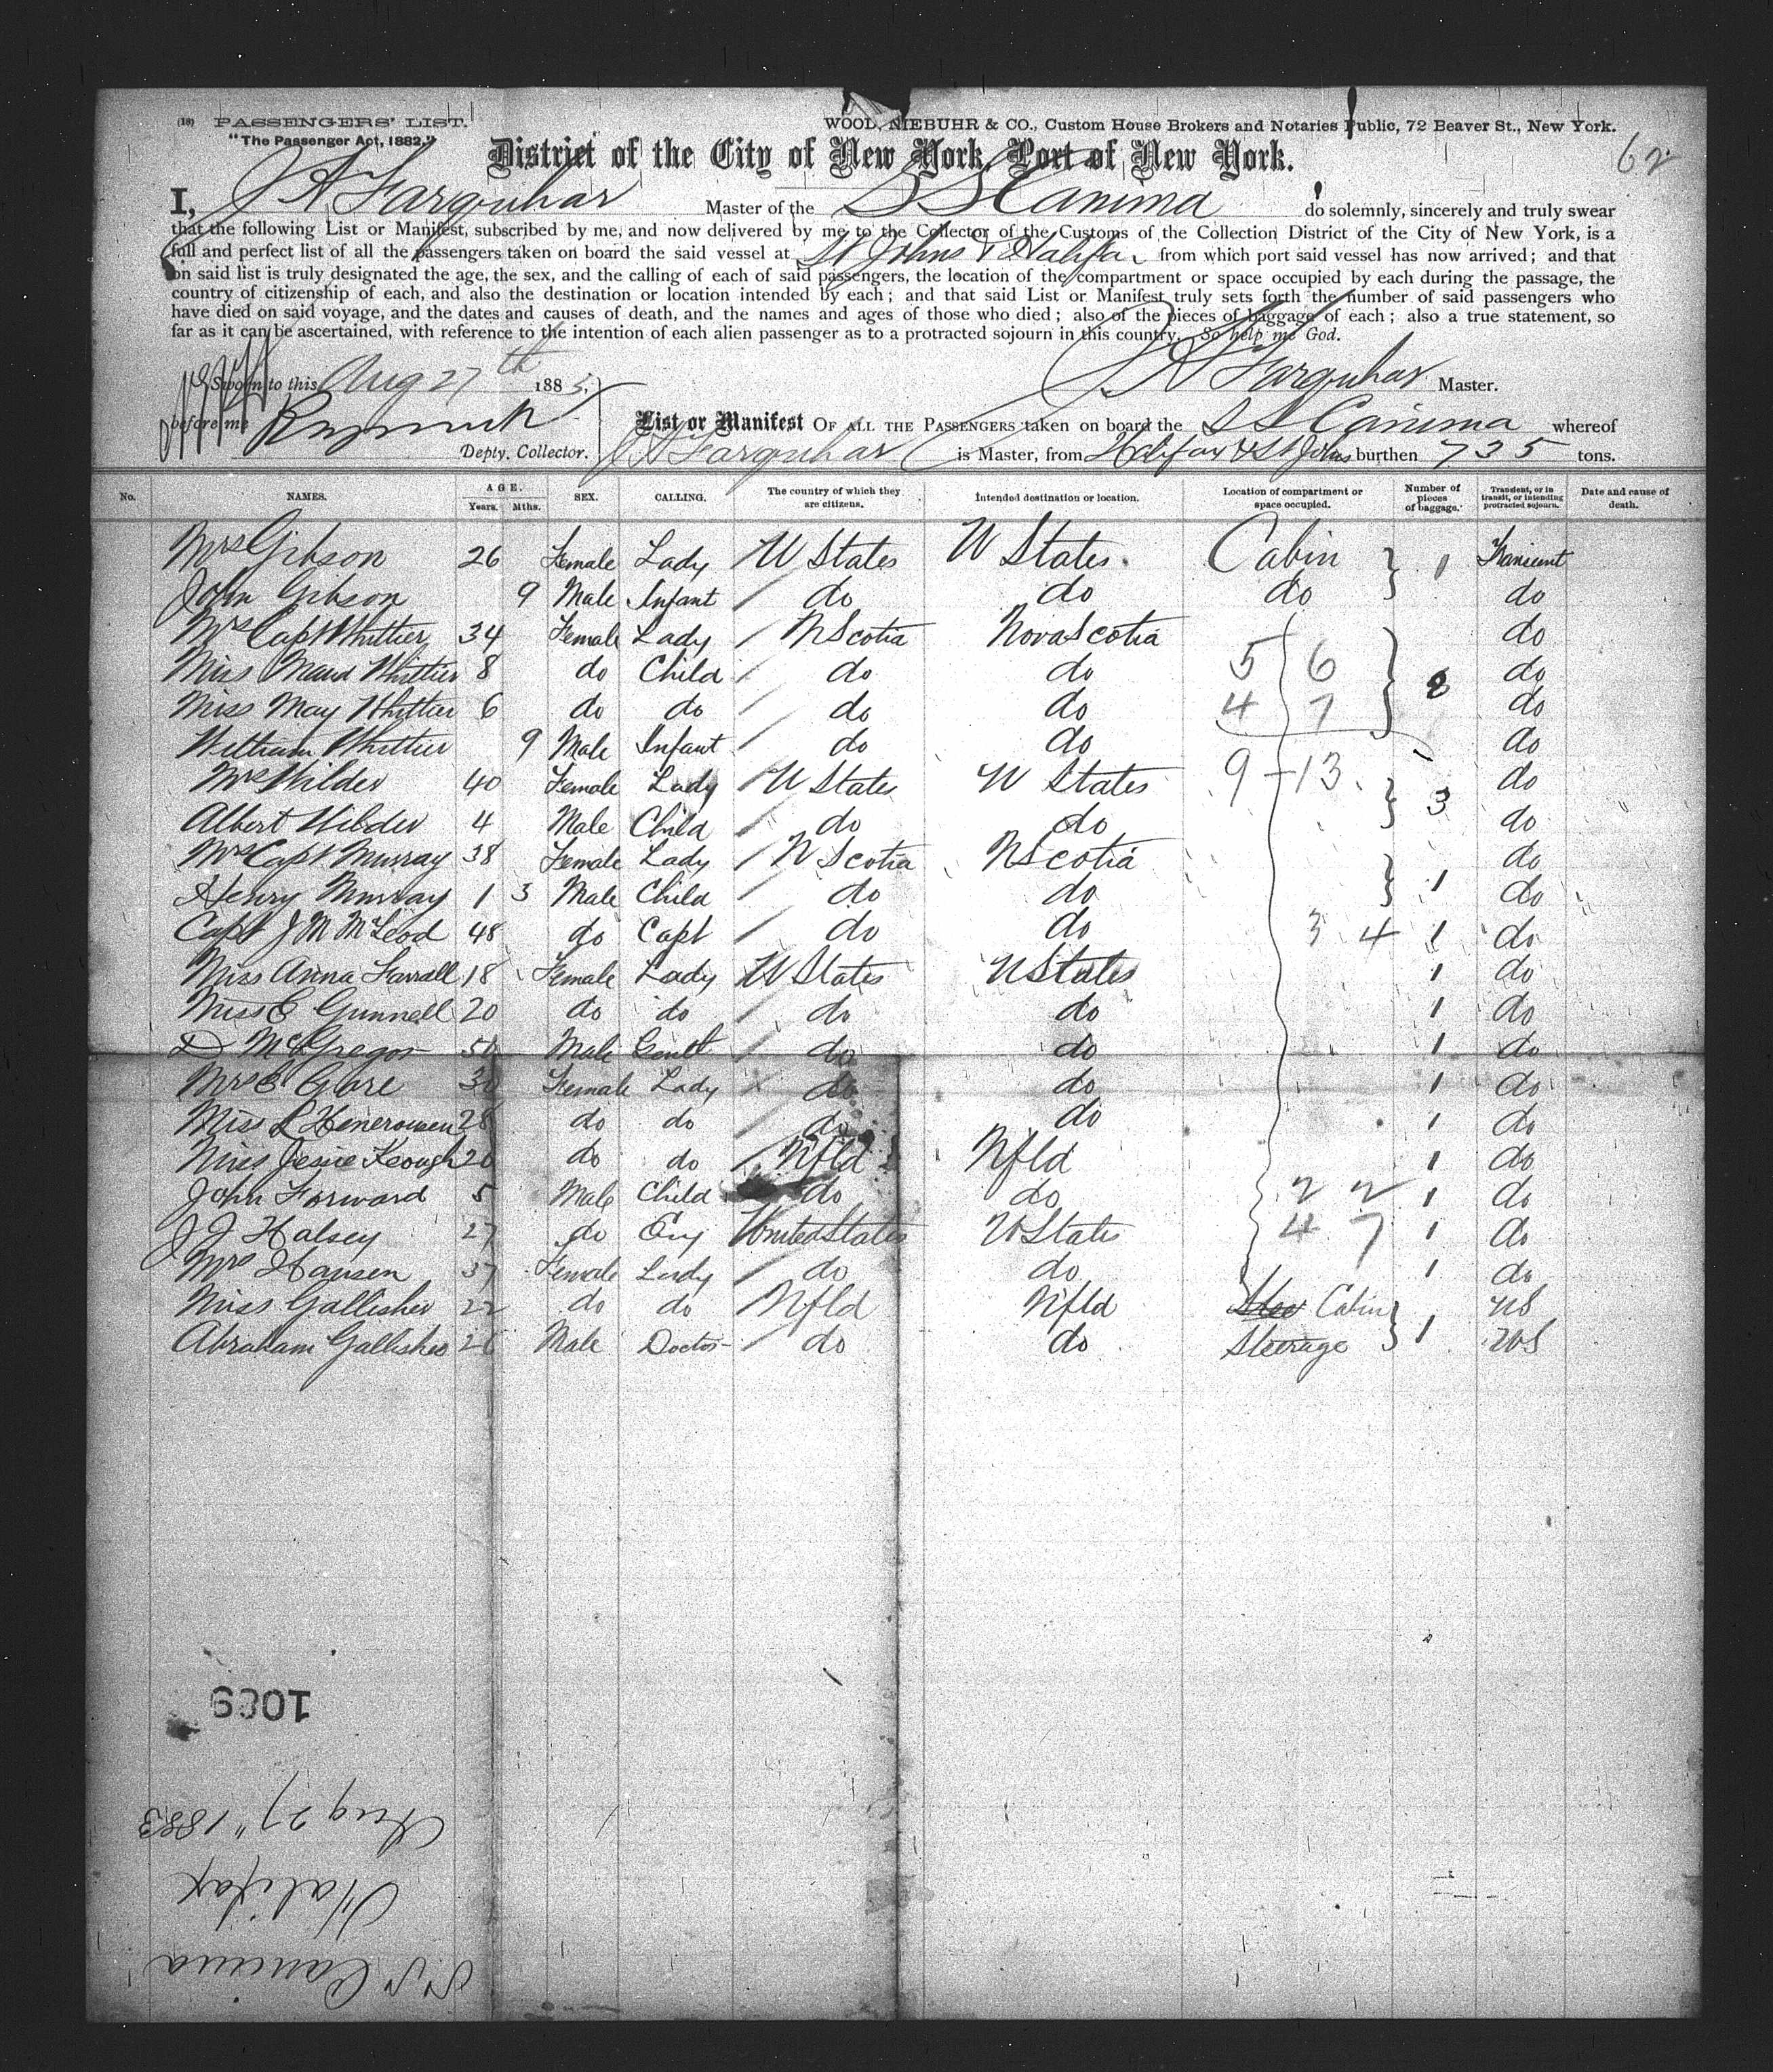 (18) PASSENGERS' LIST. WOOD, NIEBUHR & CO., Custom House Brokers and Notaries Public, 72 Beaver St., New York.
"The Passenger Act, 1882."
District of the City of New York, Port of New York. 62
I, J A Farquhar Master of the S S Canima do solemnly, sincerely and truly swear
that the following List or Manifest, subscribed by me, and now delivered by me to the Collector of the Customs of the Collection District of the City of New York, is a
full and perfect list of all the passengers taken on board the said vessel at St Johns & Halifax from which port said vessel has now arrived; and that
on said list is truly designated the age, the sex, and the calling of each of said passengers, the location of the compartment or space occupied by each during the passage, the
country of citizenship of each, and also the destination or location intended by each; and that said List or Manifest truly sets forth the number of said passengers who
have died on said voyage, and the dates and causes of death, and the names and ages of those who died; also of the pieces of baggage of each; also a true statement, so
far as it can be ascertained, with reference to the intention of each alien passenger as to a protracted sojourn in this country. So help me God.
Sworn to this Aug 27th 1883. J A Farquhar Master.
before me
Depty. Collector.
List or Manifest OF ALL THE PASSENGERS taken on board the S S Canima whereof
J A Farquhar is Master, from Halifax & St Johns burthen 735 tons.
No. NAMES. AGE. Years. Mths. SEX. CALLING. The country of which they are citizens. Intended destination or location. Location of compartment or space occupied. Number of pieces of baggage. Transient, or in transit, or intending protracted sojourn. Date and cause of death.
Mrs Gibson 26 Female Lady U States U States. Cabin 1 Transient
John Gibson 9 Male Infant do do do do
Mrs Capt Whittier 34 Female Lady N Scotia Nova Scotia do
Miss Maud Whittier 8 do Child do do 5 6 8 do
Miss May Whittier 6 do do do do 4 7 do
William Whittier 9 Male Infant do do do
Mrs Wilder 40 Female Lady U States U States 9 - 13 do
Albert Wilder 4 Male Child do do 3 do
Mrs Capt Murray 38 Female Lady N Scotia N Scotia do
Henry Murray 1 3 Male Child do do 1 do
Capt J M McLeod 48 do Capt do do 3 4 1 do
Miss Anna Farrall 18 Female Lady U States U States 1 do
Miss E Gunnell 20 do do do do 1 do
D McGregor Male Gent do do 1 do
Mrs E Gore 30 Female Lady do do 1 do
Miss L 28 do do do do 1 do
Miss Jessie Keough 20 do do Nfld Nfld 1 do
John Forward 5 Male Child do do 2 2 1 do
J J Halsey 27 do United States U States 4 7 1 do
Mrs Hansen 37 Female Lady do do 1 do
Miss Gallisher 22 do do Nfld Nfld Cabin US
Abraham Gallisher 26 Male Doctor do do Steerage 1 US
1089
Aug 27" 1883
Halifax
S S Canima